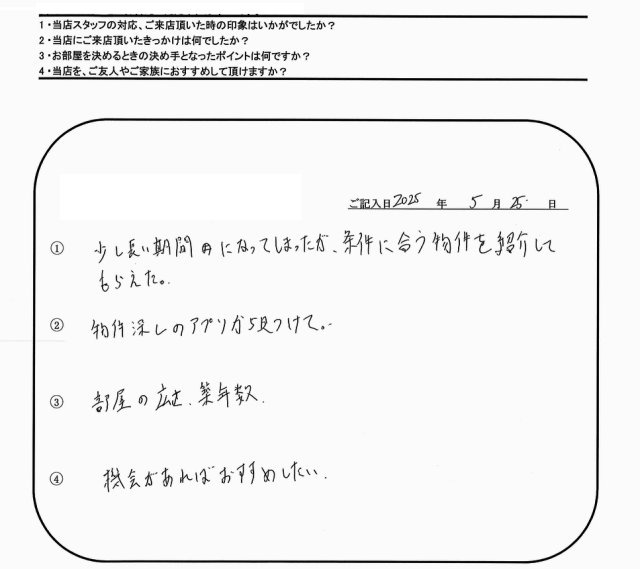 1・当店スタッフの対応、ご来店頂いた時の印象はいかがでしたか？
2・当店にご来店頂いたきっかけは何でしたか？
3・お部屋を決めるときの決め手となったポイントは何ですか？
4・当店を、ご友人やご家族におすすめして頂けますか？
ご記入日 2025 年 5 月 25 日
① 少し長い期間になってしまったが、条件に合う物件を紹介して
もらえた。
② 物件探しのアプリから見つけて。
③ 部屋の広さ、築年数、
④ 機会があればおすすめしたい。